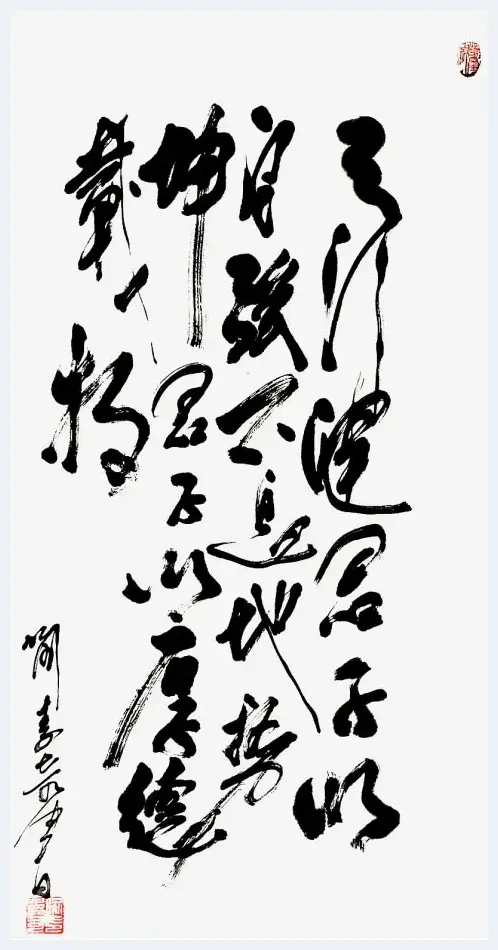 天行健君子以
自强不息地勢
坤君子以厚德
載物